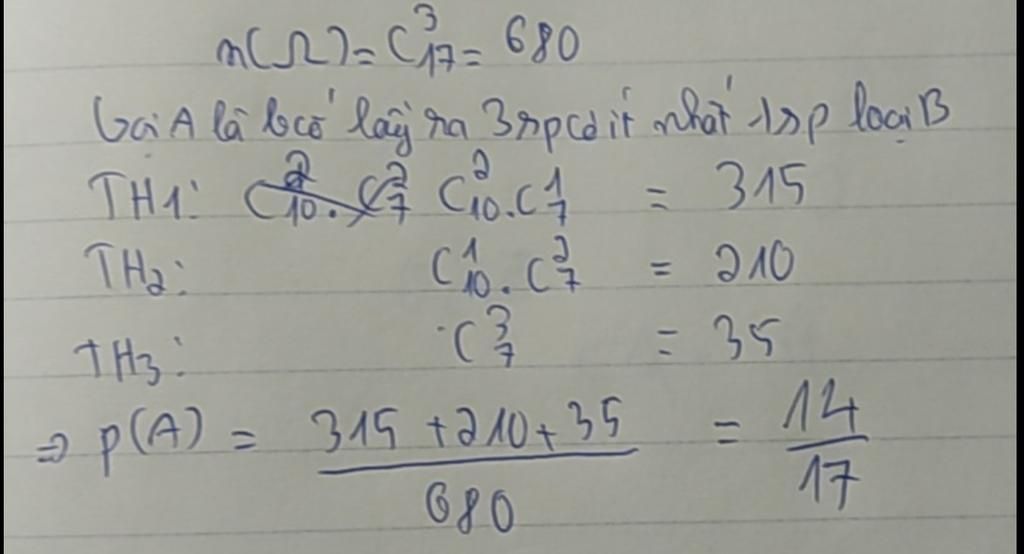 n(Ω) = C³₁₇ = 680
Gọi A là b cố lấy ra 3 sp có ít nhất 1 sp loại B
TH1: C²₁₀. C²₇ C²₁₀. C¹₇ = 315
TH2: C¹₁₀. C²₇ = 210
TH3: C³₇ = 35
⇒ P(A) = (315 + 210 + 35) / 680 = 14 / 17